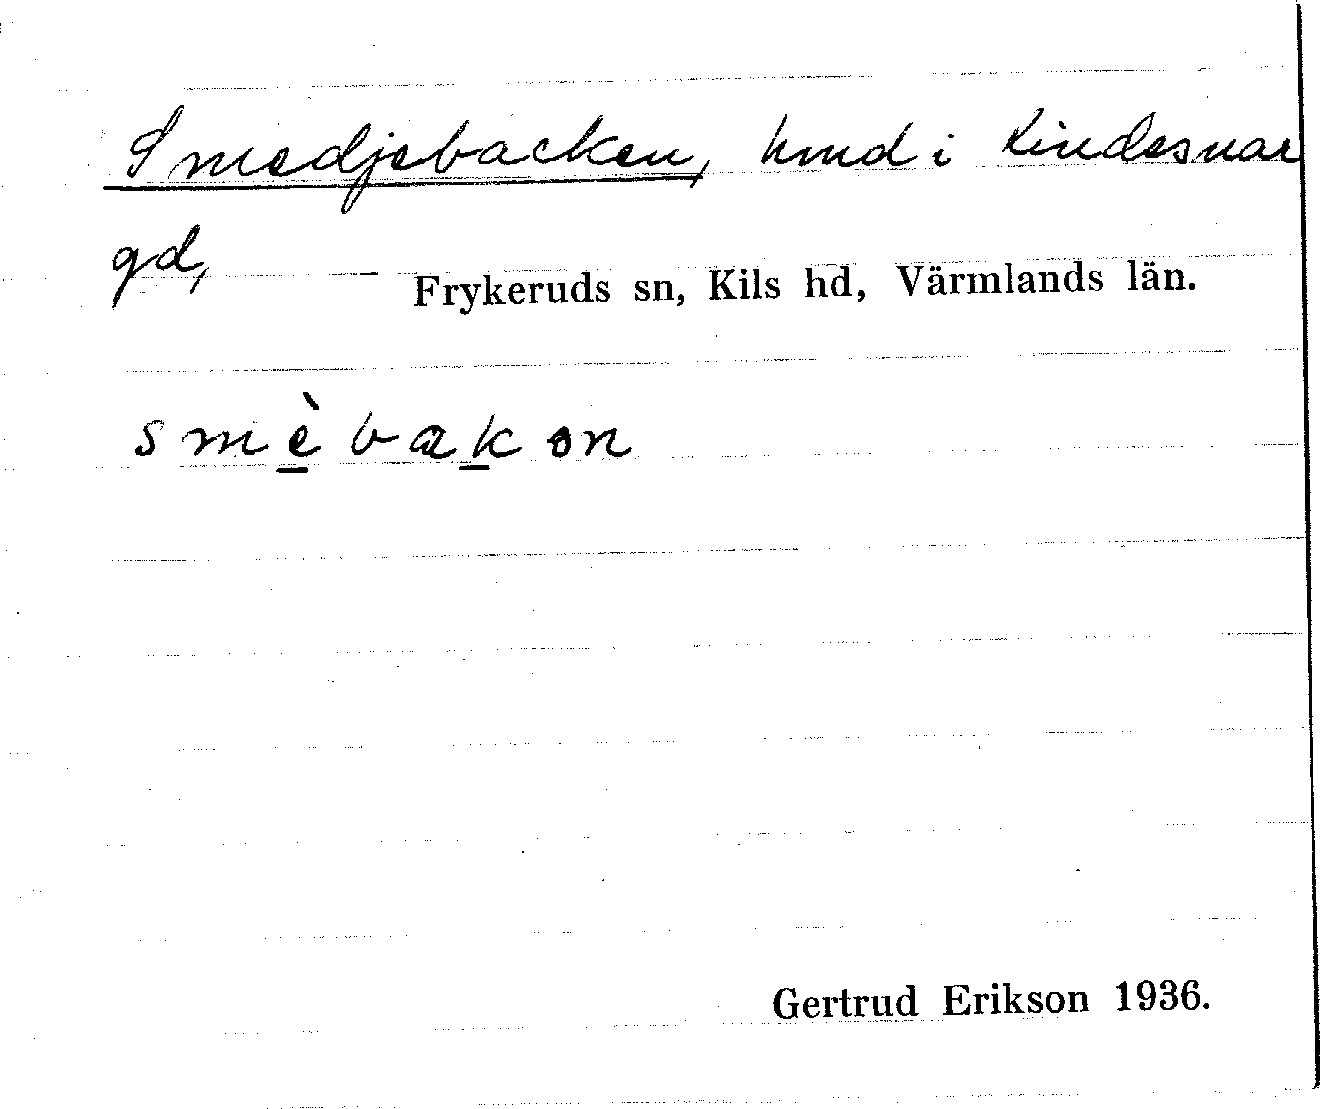 Smedjebacken, hmd i Lindesnar
gd, Frykeruds sn, Kils hd, Värmlands län.
smèbakɵn
Gertrud Erikson 1936.